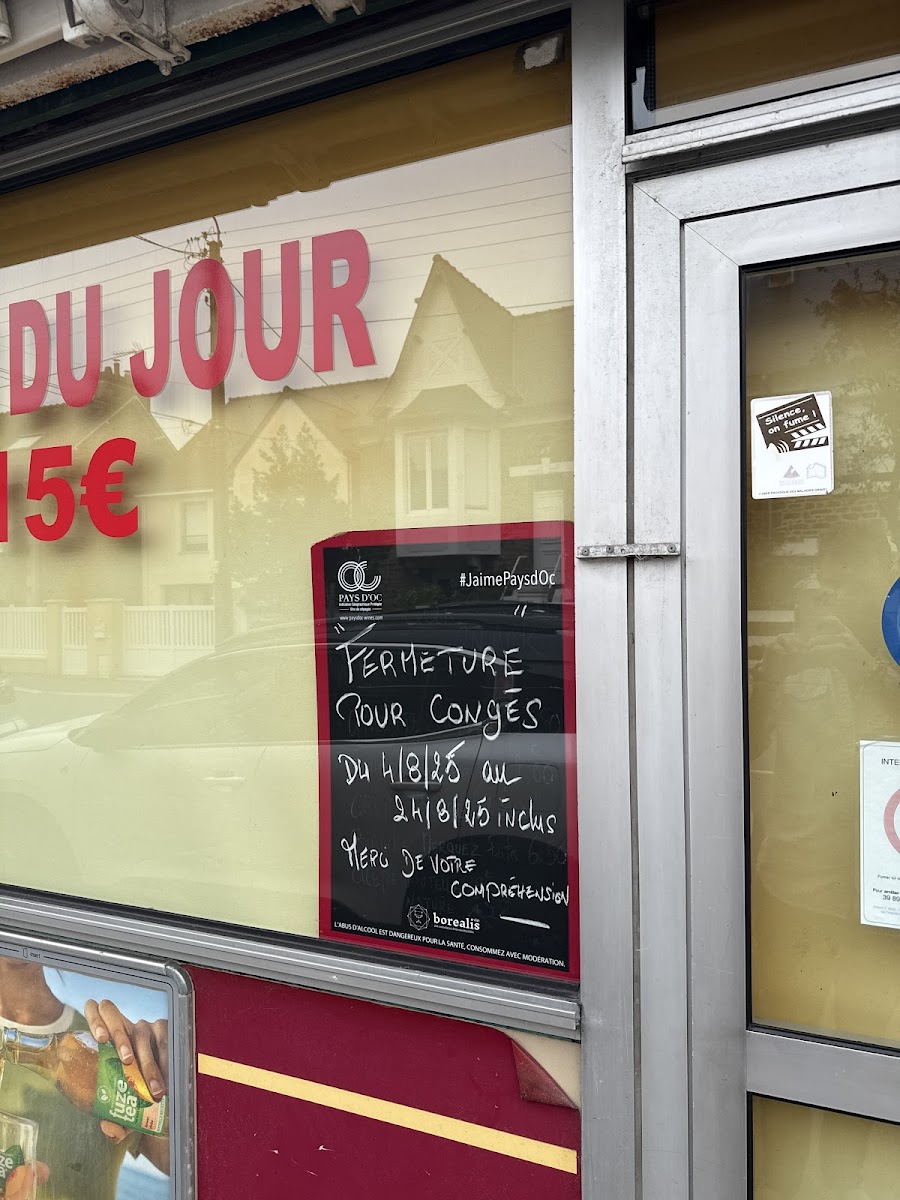 DU JOUR
15€
PAYS D'OC
Indication Géographique Protégée
www.paysdoc-wines.com
#JaimePaysdOc
" FERMETURE "
POUR CONGÉS
DU 4/8/25 au
24/8/25 inclus
MERCI DE VOTRE
COMPRÉHENSION
borealis
L'ABUS D'ALCOOL EST DANGEREUX POUR LA SANTÉ, CONSOMMEZ AVEC MODÉRATION.
Silence,
on fume !
INTE
39 89
fuze
tea
fuze
tea